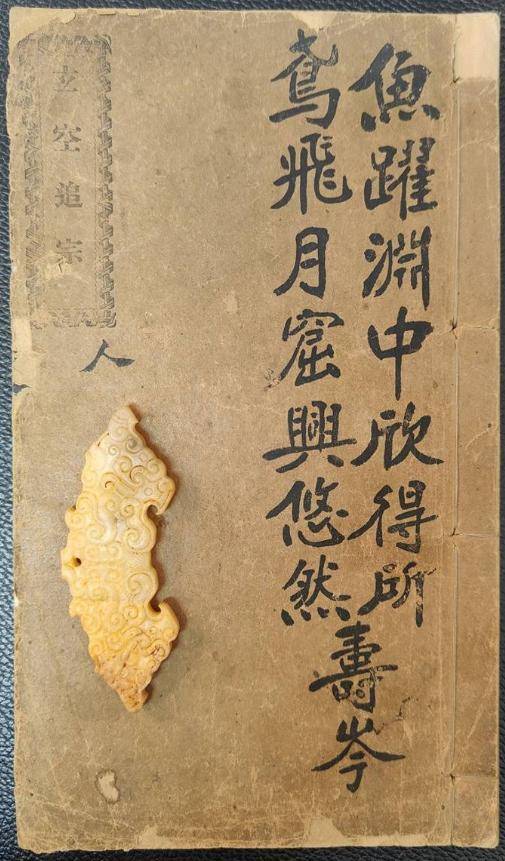 魚躍淵中欣得所
鳶飛月窟興悠然
壽岑
玄空追宗
人